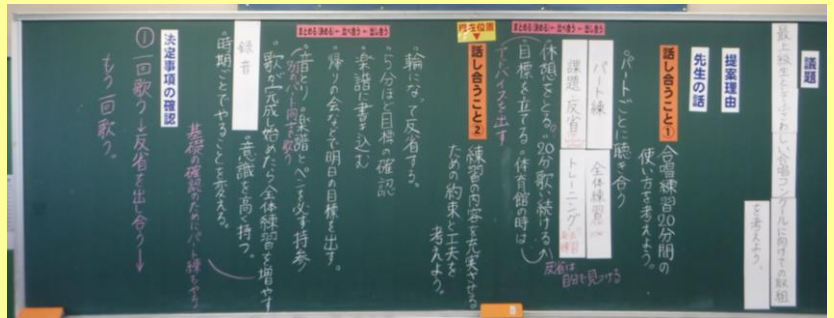 議題
最上級生としてふさわしい合唱コンクールに向けての取組
を考えよう。
提案理由
先生の話
話し合うこと①
合唱練習20分間の
使い方を考えよう。
・パートごとに聴き合う
パート練
全体練習
課題 反省
トレーニング
休憩をとる。・20分歌い続ける
・目標を立てる。・体育館の時は
アドバイスを出す
反省は
自分で見つける
まとめる(決める)← 比べ合う ← 出し合う
現在位置
話し合うこと②
練習の内容を充実させる
ための約束と工夫を
考えよう。
・輪になって反省する。
・5分ほど目標の確認
・楽譜に書き込む
・帰りの会などで明日の目標を出す。
・音とり・楽譜とペンを必ず持参
・歌が完成し始めたら全体練習を増やす
録音
・意識を高く持つ。
・時期ごとでやることを変える。
まとめる(決める)← 比べ合う ← 出し合う
基礎の確認のためにパート練もやり
決定事項の確認
① 一回歌う→反省を出し合う→
もう一回歌う。